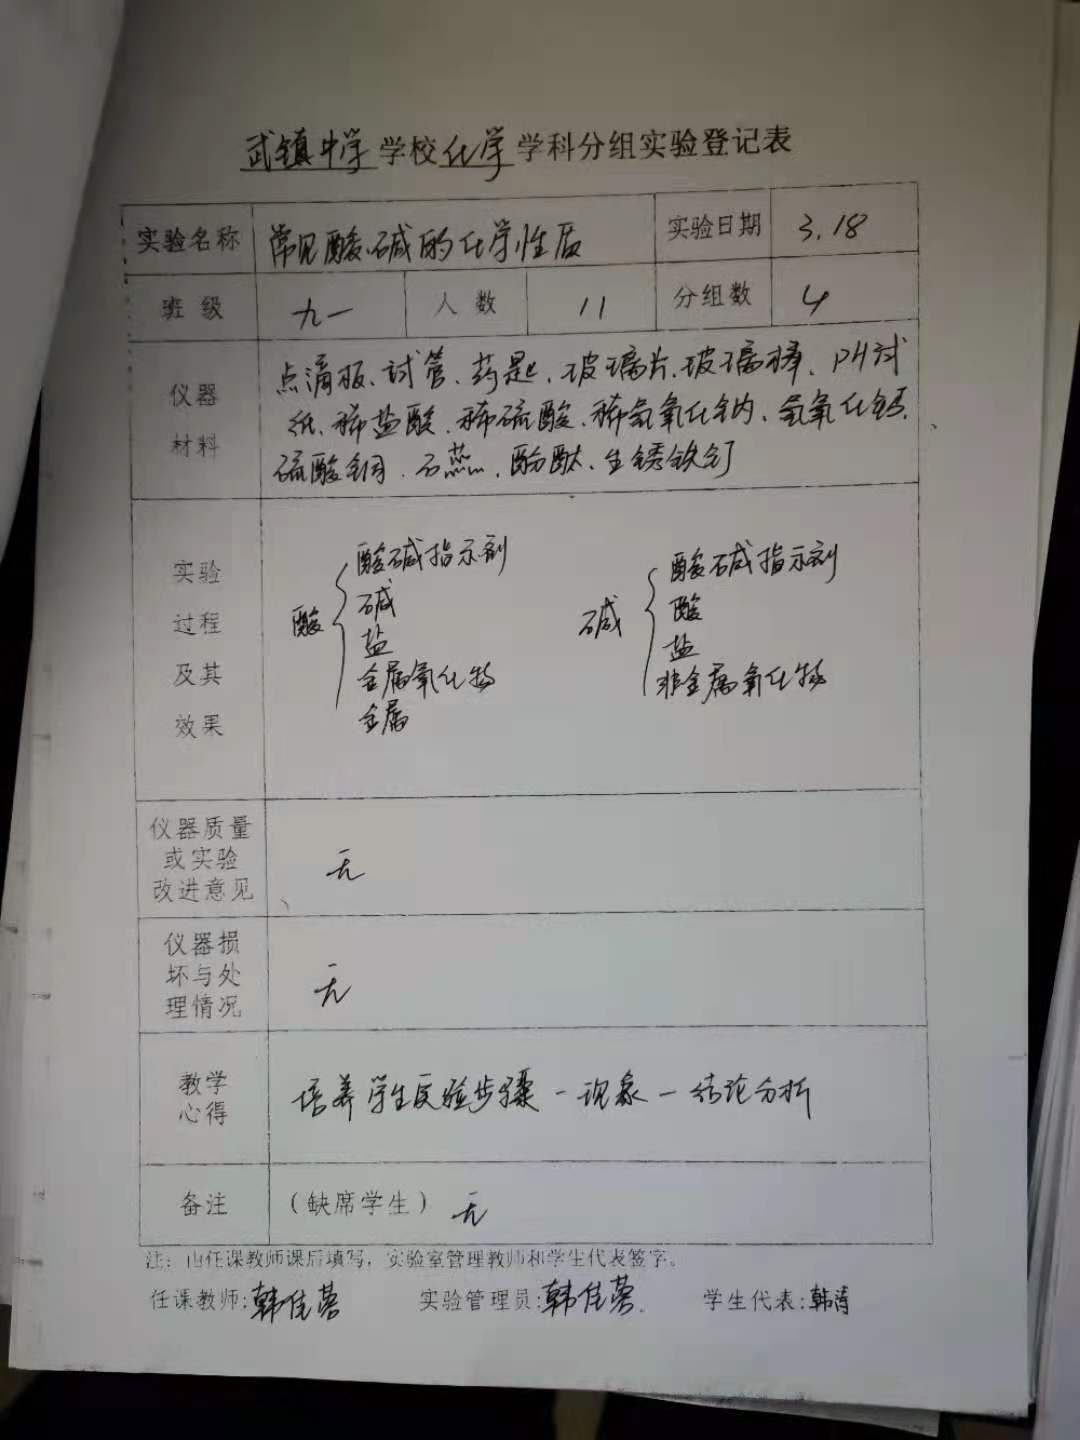 武镇中学学校化学学科分组实验登记表
实验名称 常见酸、碱的化学性质 实验日期 3.18
班级 九一 人数 11 分组数 4
仪器
材料
点滴板、试管、药匙、玻璃片、玻璃棒、PH试
纸、稀盐酸、稀硫酸、稀氢氧化钠、氢氧化钙、
硫酸铜、石蕊、酚酞、生锈铁钉
实验
过程
及其
效果
酸
酸碱指示剂
碱
盐
金属氧化物
金属
碱
酸碱指示剂
酸
盐
非金属氧化物
仪器质量
或实验
改进意见
无
仪器损
坏与处
理情况
无
教学
心得
培养学生实验步骤-现象-结论分析
备注 (缺席学生) 无
注：由任课教师课后填写，实验室管理教师和学生代表签字。
任课教师:韩佳蓉 实验管理员:韩佳蓉 学生代表:韩涛